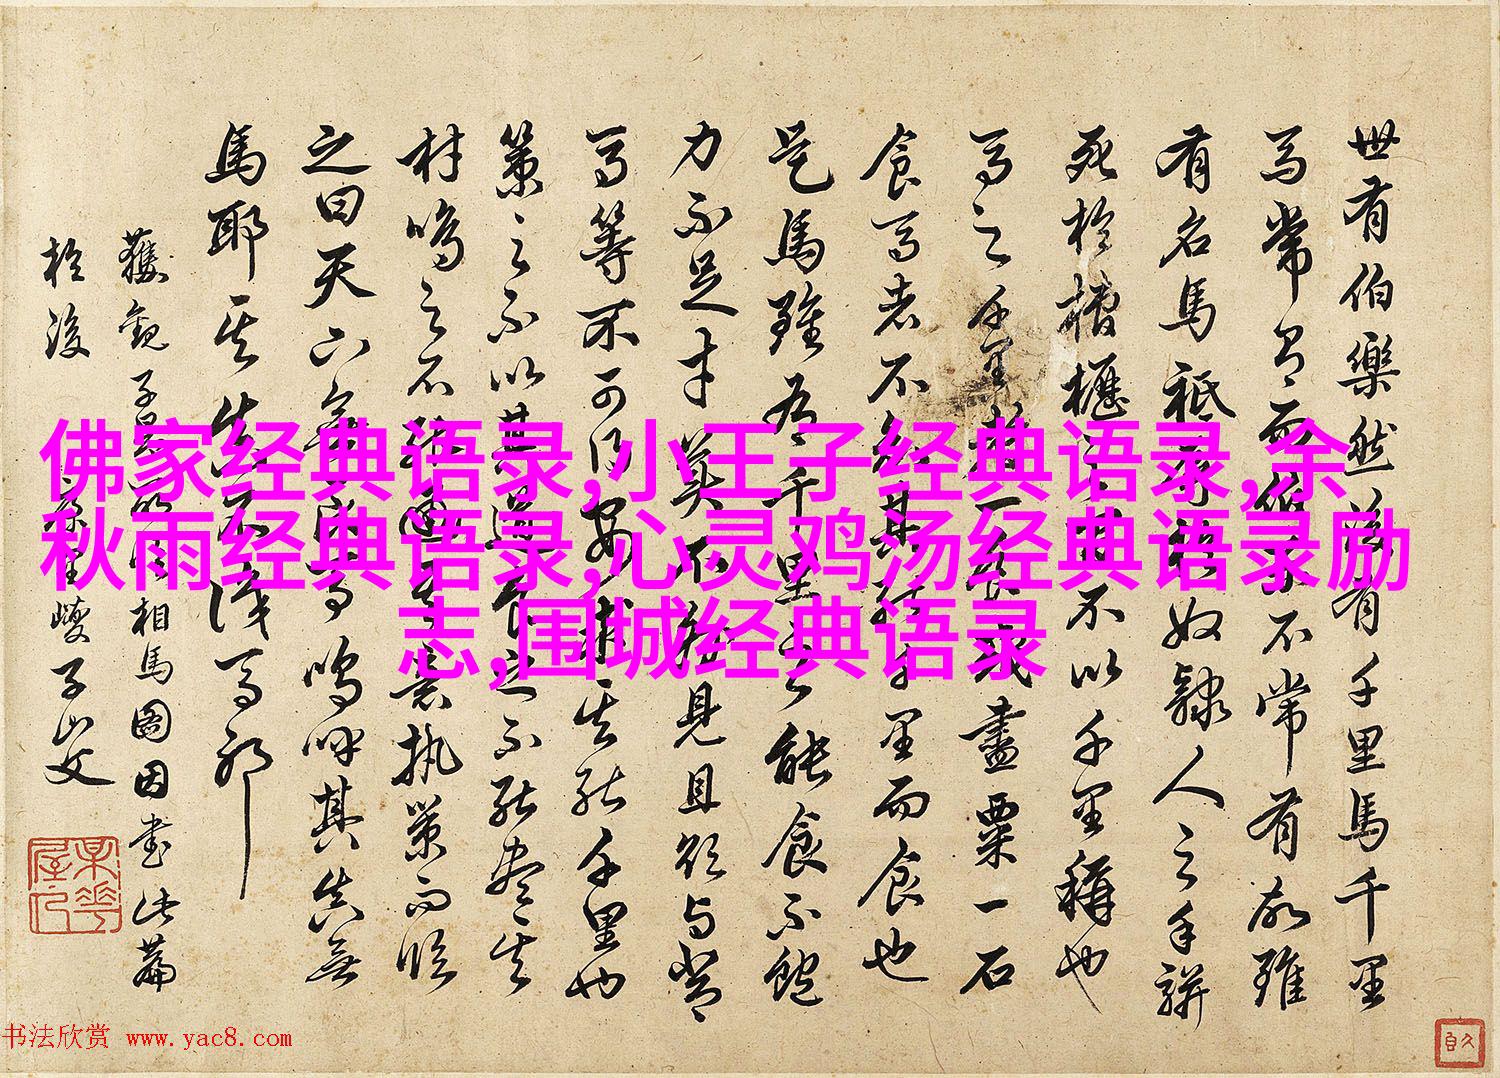 世有伯樂然後有千里馬千里
馬常有而伯樂不常有故雖
有名馬祗辱於奴隸人之手駢
死於槽櫪之間不以千里稱也
馬之千里者一食或盡粟一石
食馬者不知其能千里而食也
是馬雖有千里之能食不飽
力不足才美不外見且欲與常
馬等不可得安求其能千里也
策之不以其道食之不能盡其
材鳴之不能通其意執策而臨
之曰天下無良馬嗚呼其真無
馬耶其真不識馬耶
獲觀子昂所作相馬圖因書此篇
於後康里巎子山父
佛家经典语录,小王子经典语录,余
秋雨经典语录,心灵鸡汤经典语录励
志,围城经典语录
书法欣赏 www.yac8.com